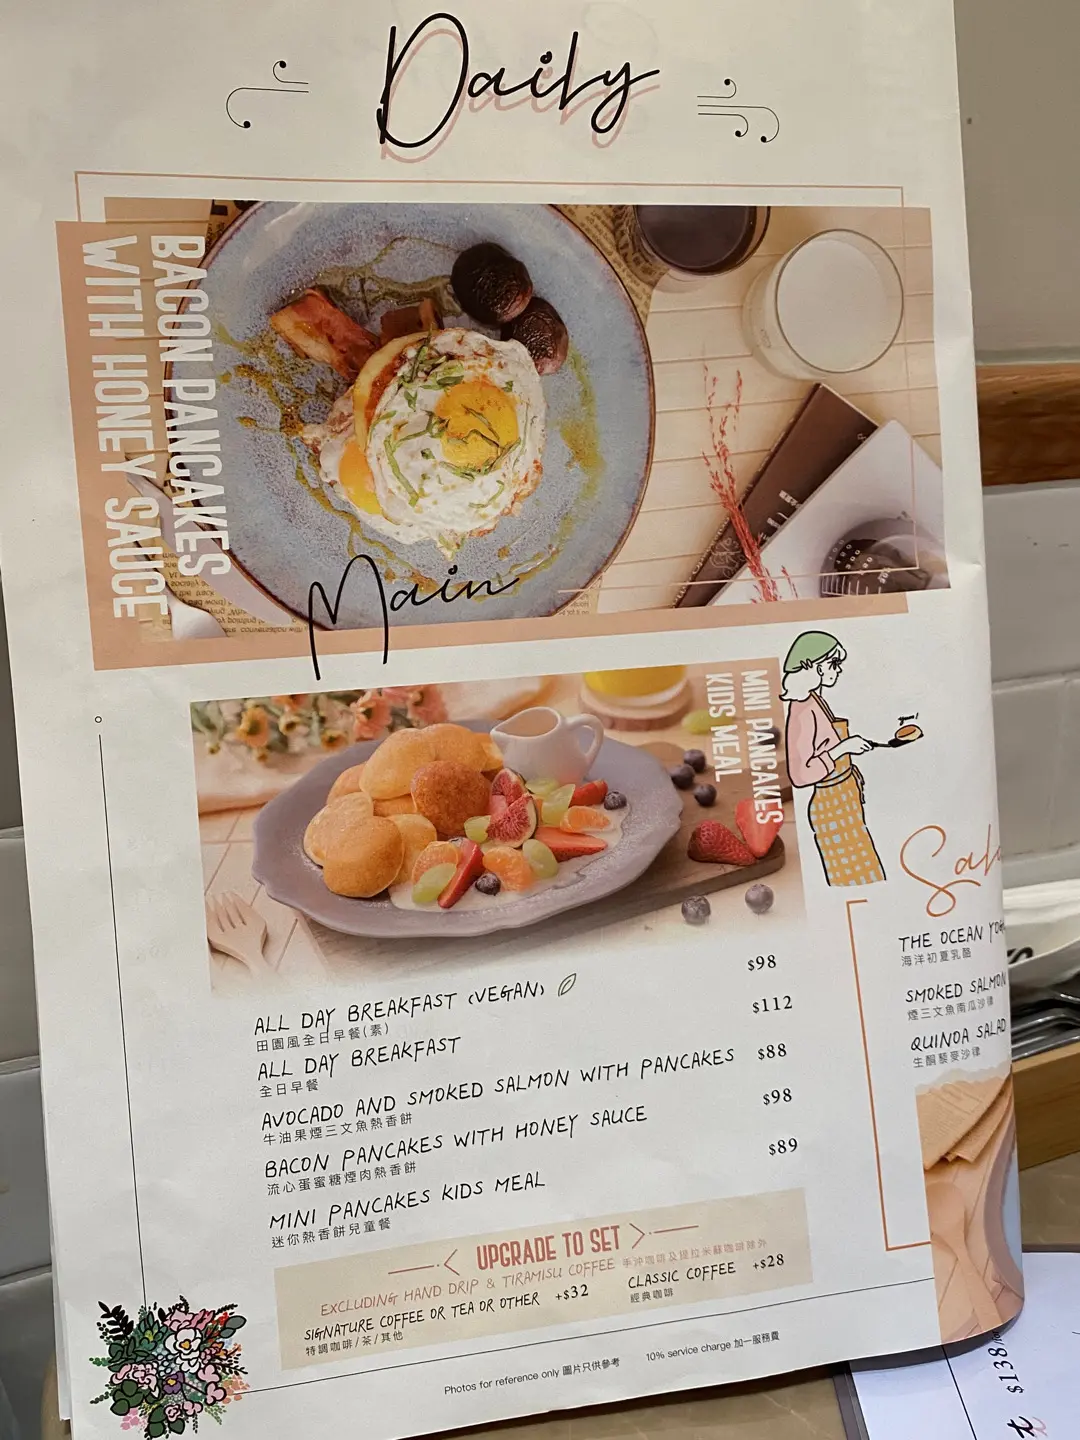 Daily
BACON PANCAKES
WITH HONEY SAUCE
Main
MINI PANCAKES
KIDS MEAL
ALL DAY BREAKFAST (VEGAN) $98
田園風全日早餐(素)
ALL DAY BREAKFAST $112
全日早餐
AVOCADO AND SMOKED SALMON WITH PANCAKES $88
牛油果煙三文魚熱香餅
BACON PANCAKES WITH HONEY SAUCE $98
流心蛋蜜糖煙肉熱香餅
MINI PANCAKES KIDS MEAL $89
迷你熱香餅兒童餐
UPGRADE TO SET
EXCLUDING HAND DRIP & TIRAMISU COFFEE 手沖咖啡及提拉米蘇咖啡除外
SIGNATURE COFFEE OR TEA OR OTHER +$32
特調咖啡/茶/其他
CLASSIC COFFEE +$28
經典咖啡
Photos for reference only 圖片只供參考
10% service charge 加一服務費
THE OCEAN
海洋初夏乳酪
SMOKED SALMON
煙三文魚南瓜沙律
QUINOA SALAD
生酮藜麥沙律
$138